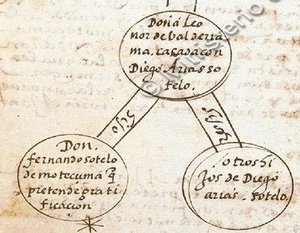 Doña Leo
nor de balderra
ma, casada con
Diego Arias so
telo.
hijo
hijos
Don.
fernando sotelo
de motecuma q̃
pretende gratí
ficacion
otros hi
jos de Diego
arias. sotelo.